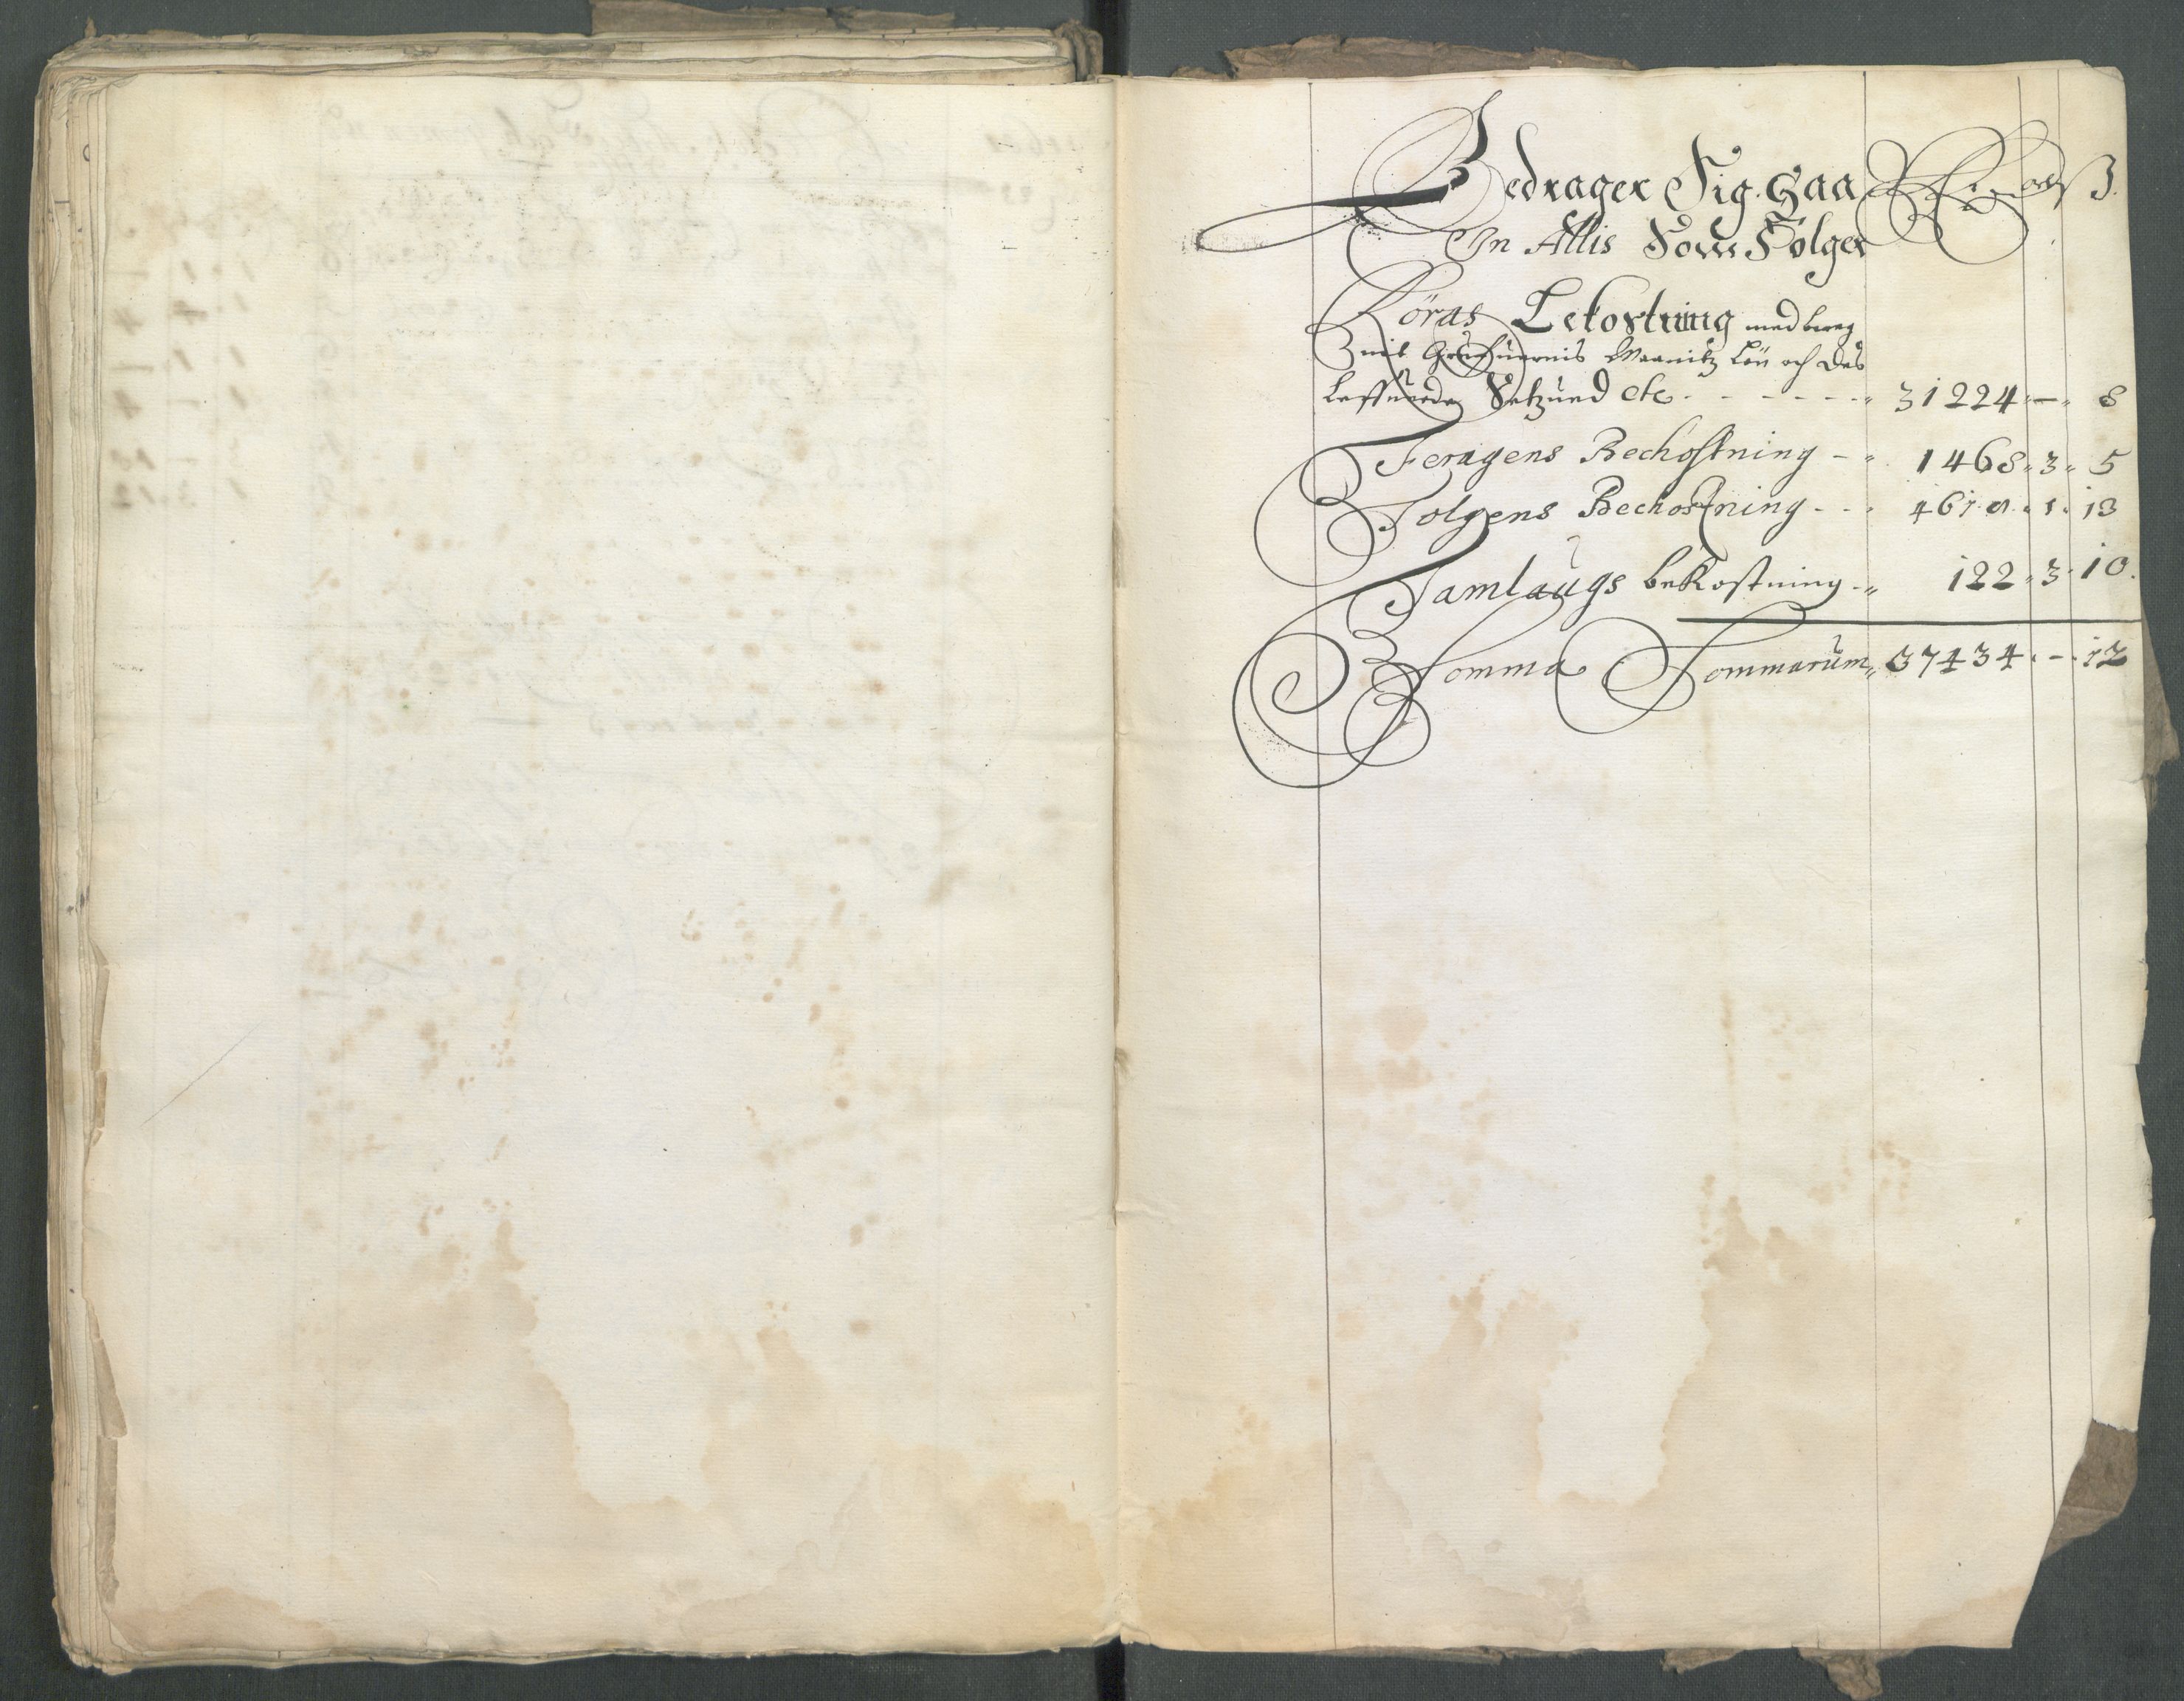 Bedrager Sig Saa Rd ort ß.
In Allis Som Fölger
Röras Bekostning med
Lön och
etc - - - - - 31224 - 8
Feragens Bechostning - 1468 3 5
Tolgens Bechostning - - - 4618 1 13
Tamlaugs bekostning - 122 3 10
Somma Sommarum 37434 - 12